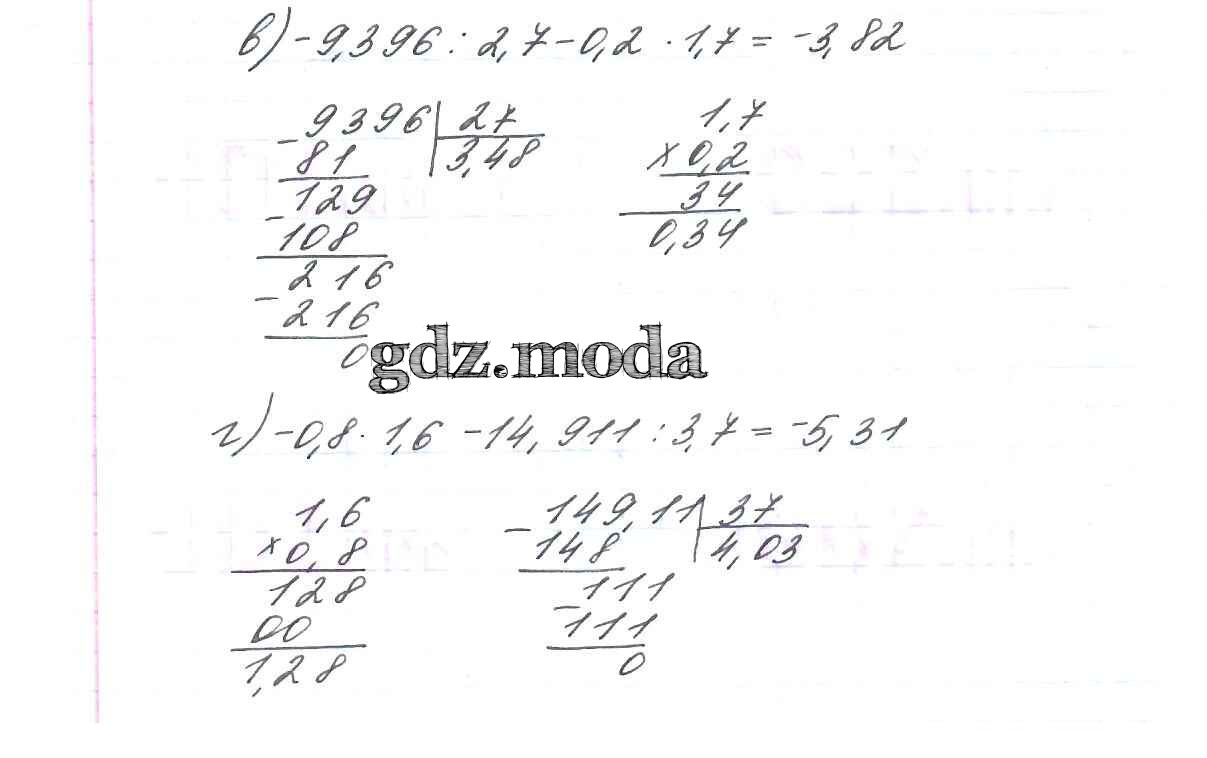 в) -9,396 : 2,7 - 0,2 · 1,7 = -3,82
- 9396 | 27
81 3,48
129
- 108
216
- 216
0
1,7
× 0,2
34
0,34
gdz.moda
г) -0,8 · 1,6 - 14,911 : 3,7 = -5,31
1,6
× 0,8
128
00
1,28
- 149,11 | 37
148 4,03
- 111
111
0